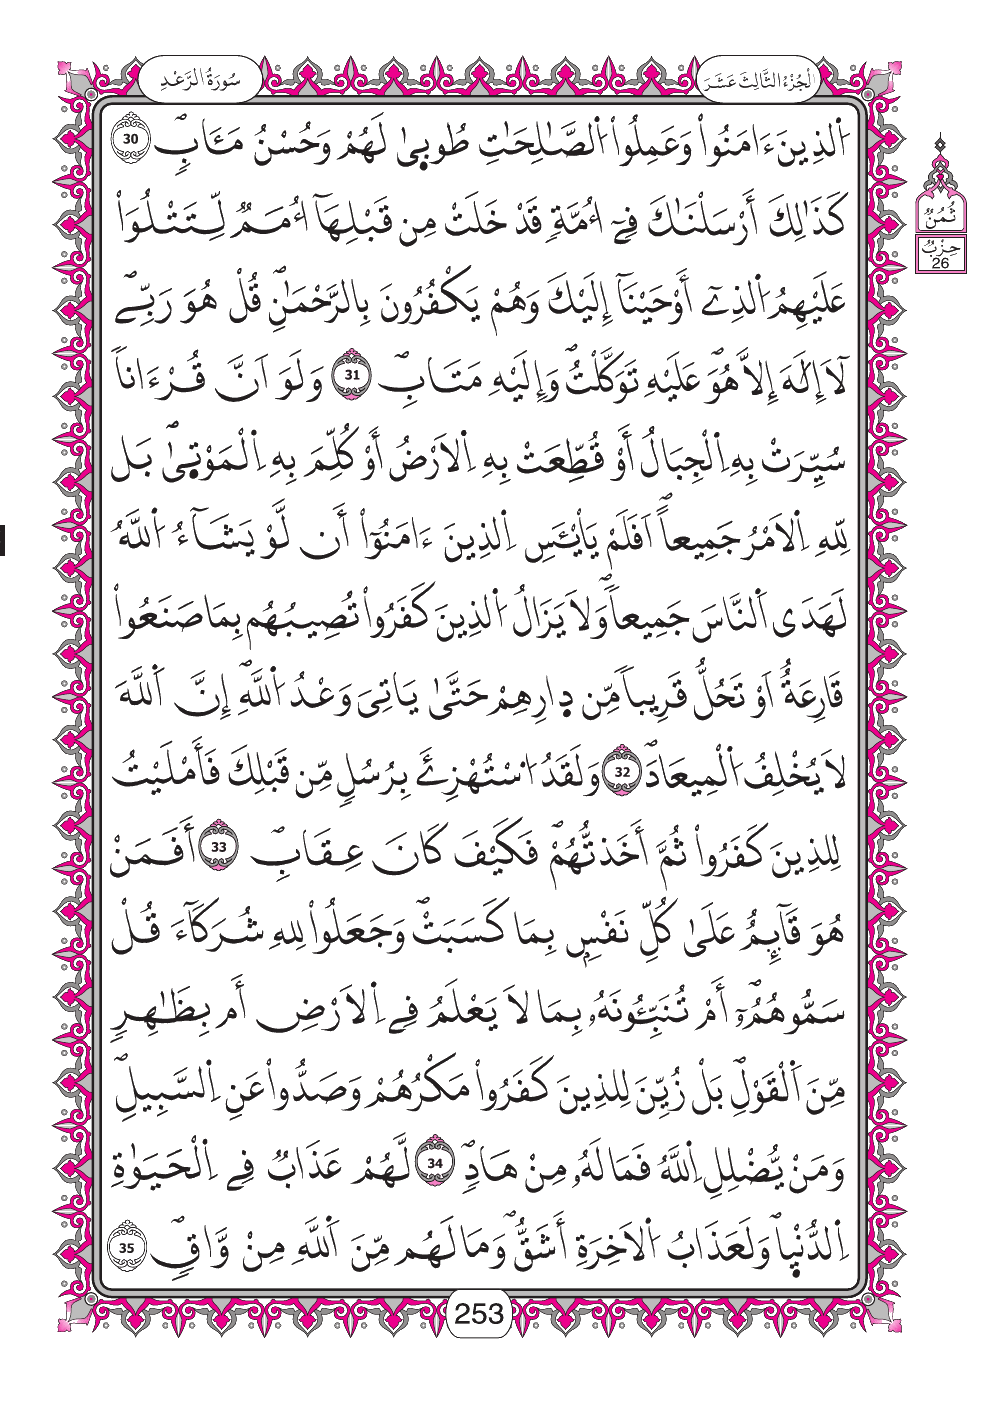 سُورَةُ الرَّعْدِ
الْجُزْءُ الثَّالِثَ عَشَرَ
اَ۬لذِينَ ءَامَنُواْ وَعَمِلُواْ اُ۬لصَّٰلِحَٰتِ طُوب۪يٰ لَهُمْ وَحُسْنُ مَـَٔابٖۖ 30
كَذَٰلِكَ أَرْسَلْنَٰكَ فِےٓ أُمَّةٖ قَدْ خَلَتْ مِن قَبْلِهَآ أُمَمٞ لِّتَتْلُوَاْ
ثُمُنٌ
حِزْبٌ
26
عَلَيْهِمُ اُ۬لذِےٓ أَوْحَيْنَآ إِلَيْكَ وَهُمْ يَكْفُرُونَ بِالرَّحْمَٰنِۖ قُلْ هُوَ رَبِّےۖ
لَآ إِلَٰهَ إِلَّا هُوَۖ عَلَيْهِ تَوَكَّلْتُۖ وَإِلَيْهِ مَتَابِۖ 31 وَلَوَ اَنَّ قُرْءَاناٗ
سُيِّرَتْ بِهِ اِ۬لْجِبَالُ أَوْ قُطِّعَتْ بِهِ اِ۬لَارْضُ أَوْ كُلِّمَ بِهِ اِ۬لْمَوْت۪يٰۖ بَل
لِّلهِ اِ۬لَامْرُ جَمِيعاًۖ اَفَلَمْ يَاْيْـَٔسِ اِ۬لذِينَ ءَامَنُوٓاْ أَن لَّوْ يَشَآءُ اُ۬للَّهُ
لَهَدَي اَ۬لنَّاسَ جَمِيعاٗۖ وَلَا يَزَالُ اُ۬لذِينَ كَفَرُواْ تُصِيبُهُم بِمَا صَنَعُواْ
قَارِعَةٌ اَوْ تَحُلُّ قَرِيباٗ مِّن د۪ارِهِمْ حَتَّيٰ يَاتِيَ وَعْدُ اُ۬للَّهِۖ إِنَّ اَ۬للَّهَ
لَا يُخْلِفُ اُ۬لْمِيعَادَۖ 32 وَلَقَدُ اُ۟سْتُهْزِئَ بِرُسُلٖ مِّن قَبْلِكَ فَأَمْلَيْتُ
لِلذِينَ كَفَرُواْ ثُمَّ أَخَذتُّهُمْۖ فَكَيْفَ كَانَ عِقَابِۖ 33 أَفَمَنْ
هُوَ قَآئِمٌ عَلَيٰ كُلِّ نَفْسِۢ بِمَا كَسَبَتْۖ وَجَعَلُواْ لِلهِ شُرَكَآءَ قُلْ
سَمُّوهُمُۥٓۖ أَمْ تُنَبِّـُٔونَهُۥ بِمَا لَا يَعْلَمُ فِے اِ۬لَارْضِ أَم بِظَٰهِرٖ
مِّنَ اَ۬لْقَوْلِۖ بَلْ زُيِّنَ لِلذِينَ كَفَرُواْ مَكْرُهُمْ وَصَدُّواْ عَنِ اِ۬لسَّبِيلِۖ
وَمَنْ يُّضْلِلِ اِ۬للَّهُ فَمَا لَهُۥ مِنْ هَادٖۖ 34 لَّهُمْ عَذَابٞ فِے اِ۬لْحَيَوٰةِ
اِ۬لدُّنْي۪اۖ وَلَعَذَابُ اُ۬لَاخِرَةِ أَشَقُّۖ وَمَا لَهُم مِّنَ اَ۬للَّهِ مِنْ وَّاقٖۖ 35
253